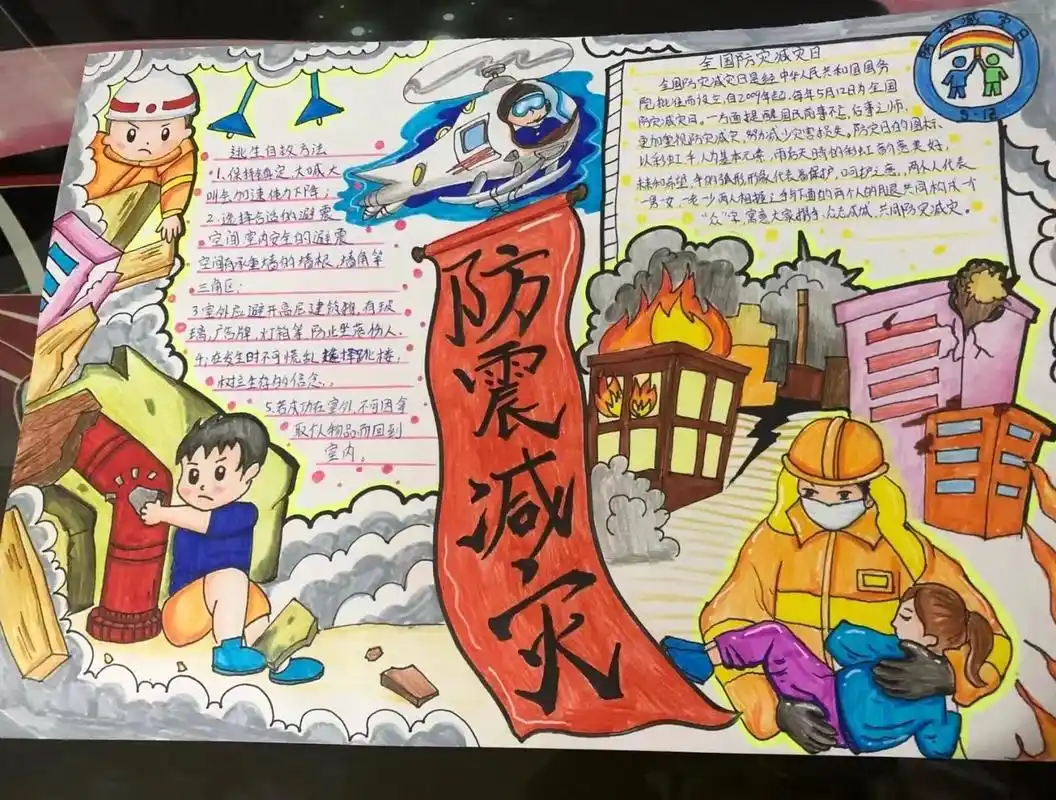 逃生自救方法
1.保持镇定,大喊大
叫会加速体力下降;
2.选择合适的避震
空间室内安全的避震
空间有承重墙的墙根,墙角等
三角区;
3.室外应避开高层建筑物,有玻
璃,广告牌,灯箱等,防止坠落伤人.
4.在发生时不可慌乱选择跳楼,
树立生存的信念.
5.若成功在室外,不可因拿
取私人物品而回到
室内。
防震减灾
全国防灾减灾日
全国防灾减灾日是经中华人民共和国国务
院批准而设立,自2009年起,每年5月12日为全国
防灾减灾日。一方面提醒国民前事不忘,后事之师,
更加重视防灾减灾,努力减少灾害损失。防灾日的图标,
以彩虹,人为基本元素,雨后天晴的彩虹寓意美好,
未来和希望,伞的弧形形象代表着保护,呵护之意,两人代表
一男一女,一老一少两人相握之手下面的两个人的腿共同构成一个
“众”字,寓意大家携手,众志成城,共同防灾减灾。
防灾减灾日
5·12